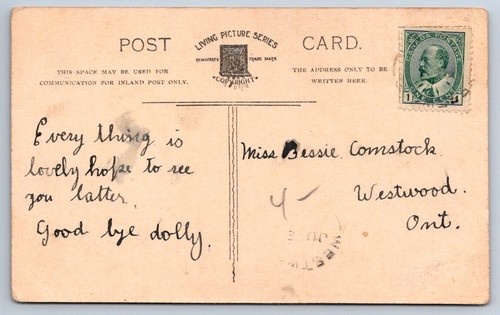 POST CARD.
LIVING PICTURE SERIES
REGISTERED TRADE MARK
COPYRIGHT
THIS SPACE MAY BE USED FOR
COMMUNICATION FOR INLAND POST ONLY.
THE ADDRESS ONLY TO BE
WRITTEN HERE.
CANADA POSTAGE
1
Every thing is
lovely hope to see
you latter.
Good bye dolly.
Miss Bessie Comstock
Westwood.
Ont.
4-
WESTW
JU